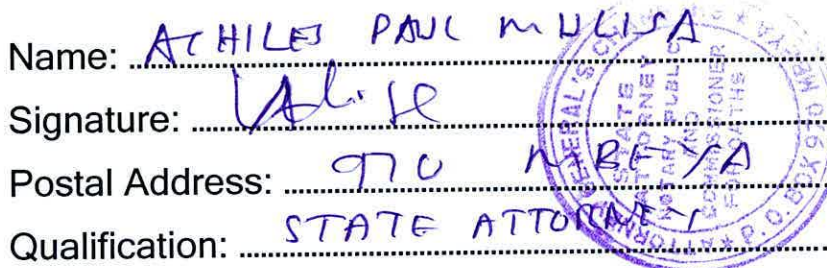 Name: ACHILES PAUL MULISA
Signature:
Postal Address: 970 MBEYA
Qualification: STATE ATTORNEY
STATE
ATTORNEY
NOTARY PUBLIC
AND
COMMISSIONER
FOR OATHS
ATTORNEY GENERAL'S
P.O. BOX 970 MBEYA